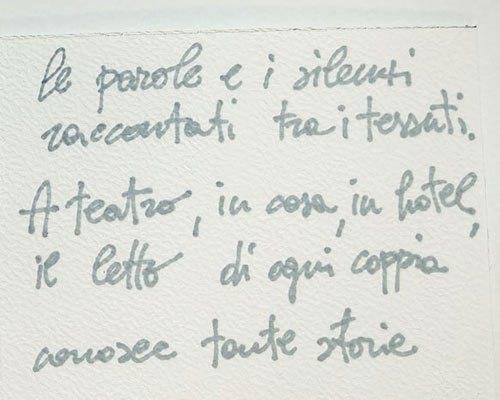 le parole e i silenzi
raccontati tra i tessuti.
A teatro, in casa, in hotel,
il letto di ogni coppia
conosce tante storie